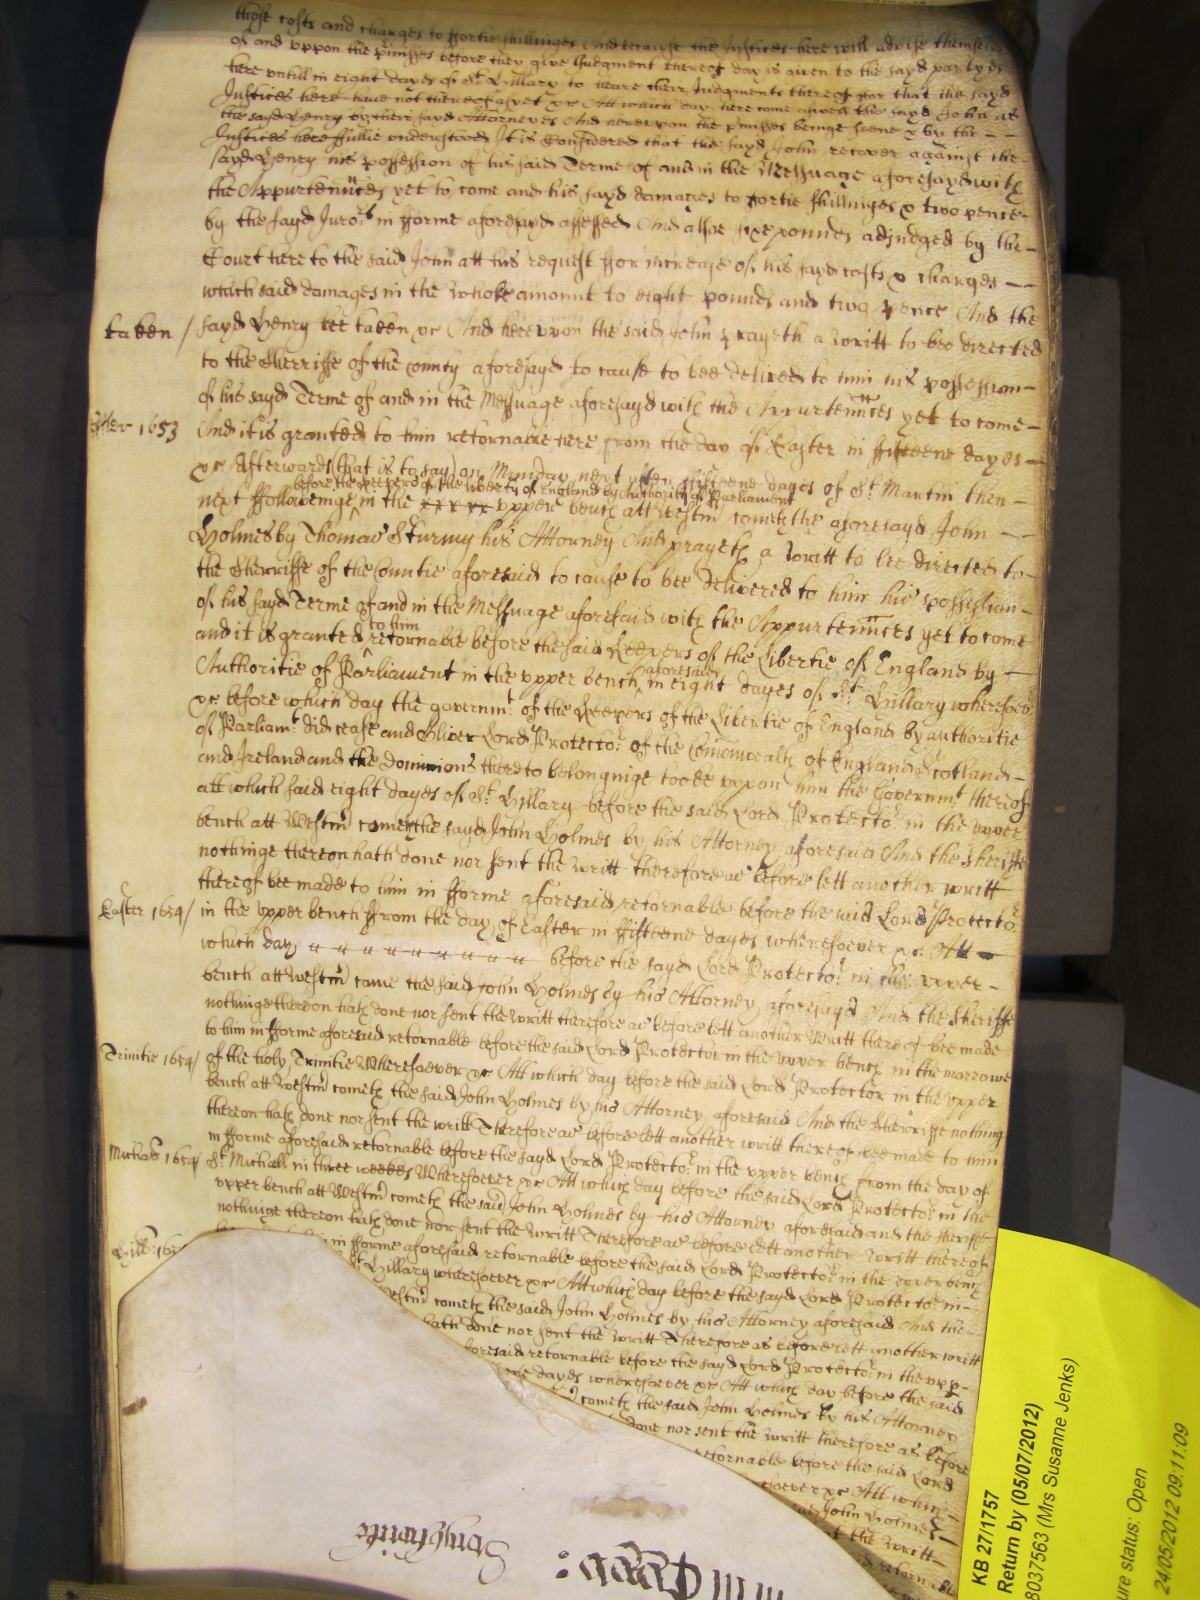 those costs and charges to fortie shillinges And because the Justices here will advise themselves
of and vppon the pmisses before they give Judgment thereof day is given to the sayd partyes
here vntill in eight dayes of St Hillary to heare their Judgments thereof for that the sayd
Justices here have not thereof as yet &c Att which day here come aswell the sayd John as
the sayd Henry by their sayd Attorneyes And herevpon the pmisses beinge seene & by the
Justices here fullie vnderstood It is Considered that the sayd John recover against the
sayd Henry his possession of his said Terme of and in the Messuage aforesayd with
the Appurtennces yet to come and his sayd damages to fortie shillinges & two pence
by the sayd Juror's in fforme aforesayd assessed And alsoe pounds adjudged by the
Court here to the said John att his request ffor increase of his sayd costs & charges
which said damages in the whole amount to eight pounds and two pence And the
taken / sayd Henry bee taken &c And herevpon the said John prayeth a writt to bee directed
to the Sherriffe of the County aforesayd to cause to bee delivred to him his possession
of his sayd Terme of and in the Messuage aforesayd with the Appurtennces yet to come
Easter 1653 And it is granted to him retornable here from the day of Easter in fifteene dayes
&c Afterwards (that is to say) on Munday next after fifteene dayes of St Martin then
before the Keepers of the liberty of England by Authority of Parliament
next ffolloweinge in the vpper bench att Westmr cometh the aforesayd John
Holmes by Thomas Sturmy his Attorney And prayeth a writt to bee directed to
the Sherriffe of the Countie aforesaid to cause to bee delivered to him his possession
of his sayd Terme of and in the Messuage aforesaid with the Appurtennces yet to come
to him
and it is granted retornable before the said Keepers of the Libertie of England by
aforesaid
Authoritie of Parliament in the vpper bench in eight dayes of St Hillary wheresoevr
&c before which day the governmt of the Keepers of the Libertie of England by authoritie
of Parliamt did cease and Oliver Lord Protector of the Comonwealth of England Scotland
and Ireland and the dominions thereto belonginge tooke vppon him the Governmt thereof
att which said eight dayes of St Hillary before the said Lord Protector in the vpper
bench att Westmr cometh the sayd John Holmes by his Attorney aforesaid And the Sheriffe
nothinge thereon hath done nor sent the writt therefore as before lett another writt
thereof bee made to him in fforme aforesaid retornable before the said Lord Protector
Easter 1654 / in the vpper bench ffrom the day of Easter in ffifteene dayes wheresoever &c Att
which day before the sayd Lord Protector in the vpper
bench att Westmr came the said John Holmes by his Attorney aforesayd And the Sheriffe
nothinge thereon hath done nor sent the writt therefore as before lett another writt thereof bee made
to him in fforme aforesaid retornable before the said Lord Protector in the vpper bench in the morrowe
Trinitie 1654 / of the holy Trinitie Wheresoever &c Att which day before the said Lord Protector in the vpper
bench att Westmr cometh the said John Holmes by his Attorney aforesaid And the Sherriffe nothing
thereon hath done nor sent the writt Therefore as before lett another writt thereof bee made to him
in fforme aforesaid retornable before the sayd Lord Protector in the vpper bench from the day of
Michas 1654 / St Michall in three weekes Wheresoever &c Att which day before the said Lord Protector in the
vpper bench att Westmr cometh the said John Holmes by his Attorney aforesaid and the Sheriffe
nothinge thereon hath done nor sent the writt Therefore as before lett another writt thereof
in fforme aforesaid retornable before the said Lord Protector in the vpper bench
Hillary wheresoever &c Att which day before the sayd Lord Protector in
cometh the said John Holmes by his Attorney aforesaid And the
hath done nor sent the writt Therefore as before lett another writt
retornable before the sayd Lord Protector in the vpp
dayes wheresoever &c Att which day before the said
cometh the said John Holmes by his Attorney
done nor sent the writt therefore as before
retornable before the said Lord
&c Att which
John Holmes
the writt
KB 27/1757
Return by (05/07/2012)
8037563 (Mrs Susanne Jenks)
ure status: Open
24/05/2012 09:11:09